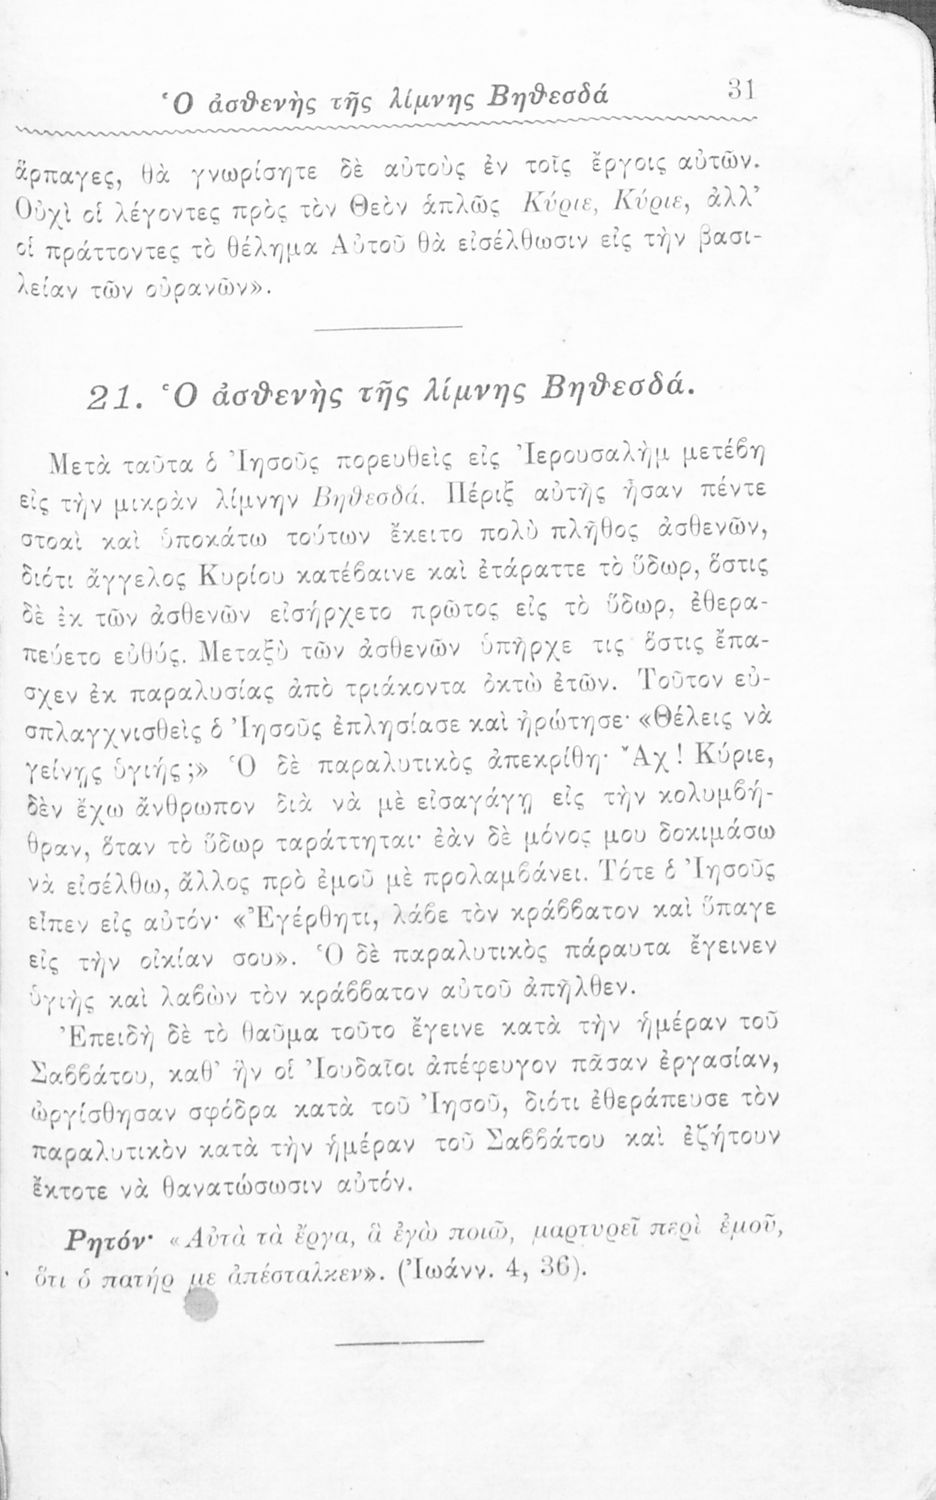 Ὁ ἀσθενὴς τῆς λίμνης Βηθεσδά 31
ἅρπαγες, θὰ γνωρίσητε δὲ αὐτοὺς ἐν τοῖς ἔργοις αὐτῶν.
Οὐχὶ οἱ λέγοντες πρὸς τὸν Θεὸν ἁπλῶς Κύριε, Κύριε, ἀλλ’
οἱ πράττοντες τὸ θέλημα Αὐτοῦ θὰ εἰσέλθωσιν εἰς τὴν βασι-
λείαν τῶν οὐρανῶν».
21. Ὁ ἀσθενὴς τῆς λίμνης Βηθεσδά.
Μετὰ ταῦτα ὁ Ἰησοῦς πορευθεὶς εἰς Ἱερουσαλὴμ μετέβη
εἰς τὴν μικρὰν λίμνην Βηθεσδά. Πέριξ αὐτῆς ἦσαν πέντε
στοαὶ καὶ ὑποκάτω τούτων ἔκειτο πολὺ πλῆθος ἀσθενῶν,
διότι ἄγγελος Κυρίου κατέβαινε καὶ ἐτάραττε τὸ ὕδωρ, ὅστις
δὲ ἐκ τῶν ἀσθενῶν εἰσήρχετο πρῶτος εἰς τὸ ὕδωρ, ἐθερα-
πεύετο εὐθύς. Μεταξὺ τῶν ἀσθενῶν ὑπῆρχε τις ὅστις ἔπα-
σχεν ἐκ παραλυσίας ἀπὸ τριάκοντα ὀκτὼ ἐτῶν. Τοῦτον εὐ-
σπλαγχνισθεὶς ὁ Ἰησοῦς ἐπλησίασε καὶ ἠρώτησε· «Θέλεις νὰ
γείνῃς ὑγιής;» Ὁ δὲ παραλυτικὸς ἀπεκρίθη· Ἂχ! Κύριε,
δὲν ἔχω ἄνθρωπον διὰ νὰ μὲ εἰσαγάγῃ εἰς τὴν κολυμβή-
θραν, ὅταν τὸ ὕδωρ ταράττηται· ἐὰν δὲ μόνος μου δοκιμάσω
νὰ εἰσέλθω, ἄλλος πρὸ ἐμοῦ μὲ προλαμβάνει. Τότε ὁ Ἰησοῦς
εἶπεν εἰς αὐτόν· «Ἐγέρθητι, λάβε τὸν κράββατον καὶ ὕπαγε
εἰς τὴν οἰκίαν σου». Ὁ δὲ παραλυτικὸς πάραυτα ἔγεινεν
ὑγιὴς καὶ λαβὼν τὸν κράββατον αὐτοῦ ἀπῆλθεν.
Ἐπειδὴ δὲ τὸ θαῦμα τοῦτο ἔγεινε κατὰ τὴν ἡμέραν τοῦ
Σαββάτου, καθ’ ἣν οἱ Ἰουδαῖοι ἀπέφευγον πᾶσαν ἐργασίαν,
ὠργίσθησαν σφόδρα κατὰ τοῦ Ἰησοῦ, διότι ἐθεράπευσε τὸν
παραλυτικὸν κατὰ τὴν ἡμέραν τοῦ Σαββάτου καὶ ἐζήτουν
ἔκτοτε νὰ θανατώσωσιν αὐτόν.
Ρητόν· «Αὐτὰ τὰ ἔργα, ἃ ἐγὼ ποιῶ, μαρτυρεῖ περὶ ἐμοῦ,
ὅτι ὁ πατήρ με ἀπέσταλκεν». (Ἰωάνν. 4, 36).